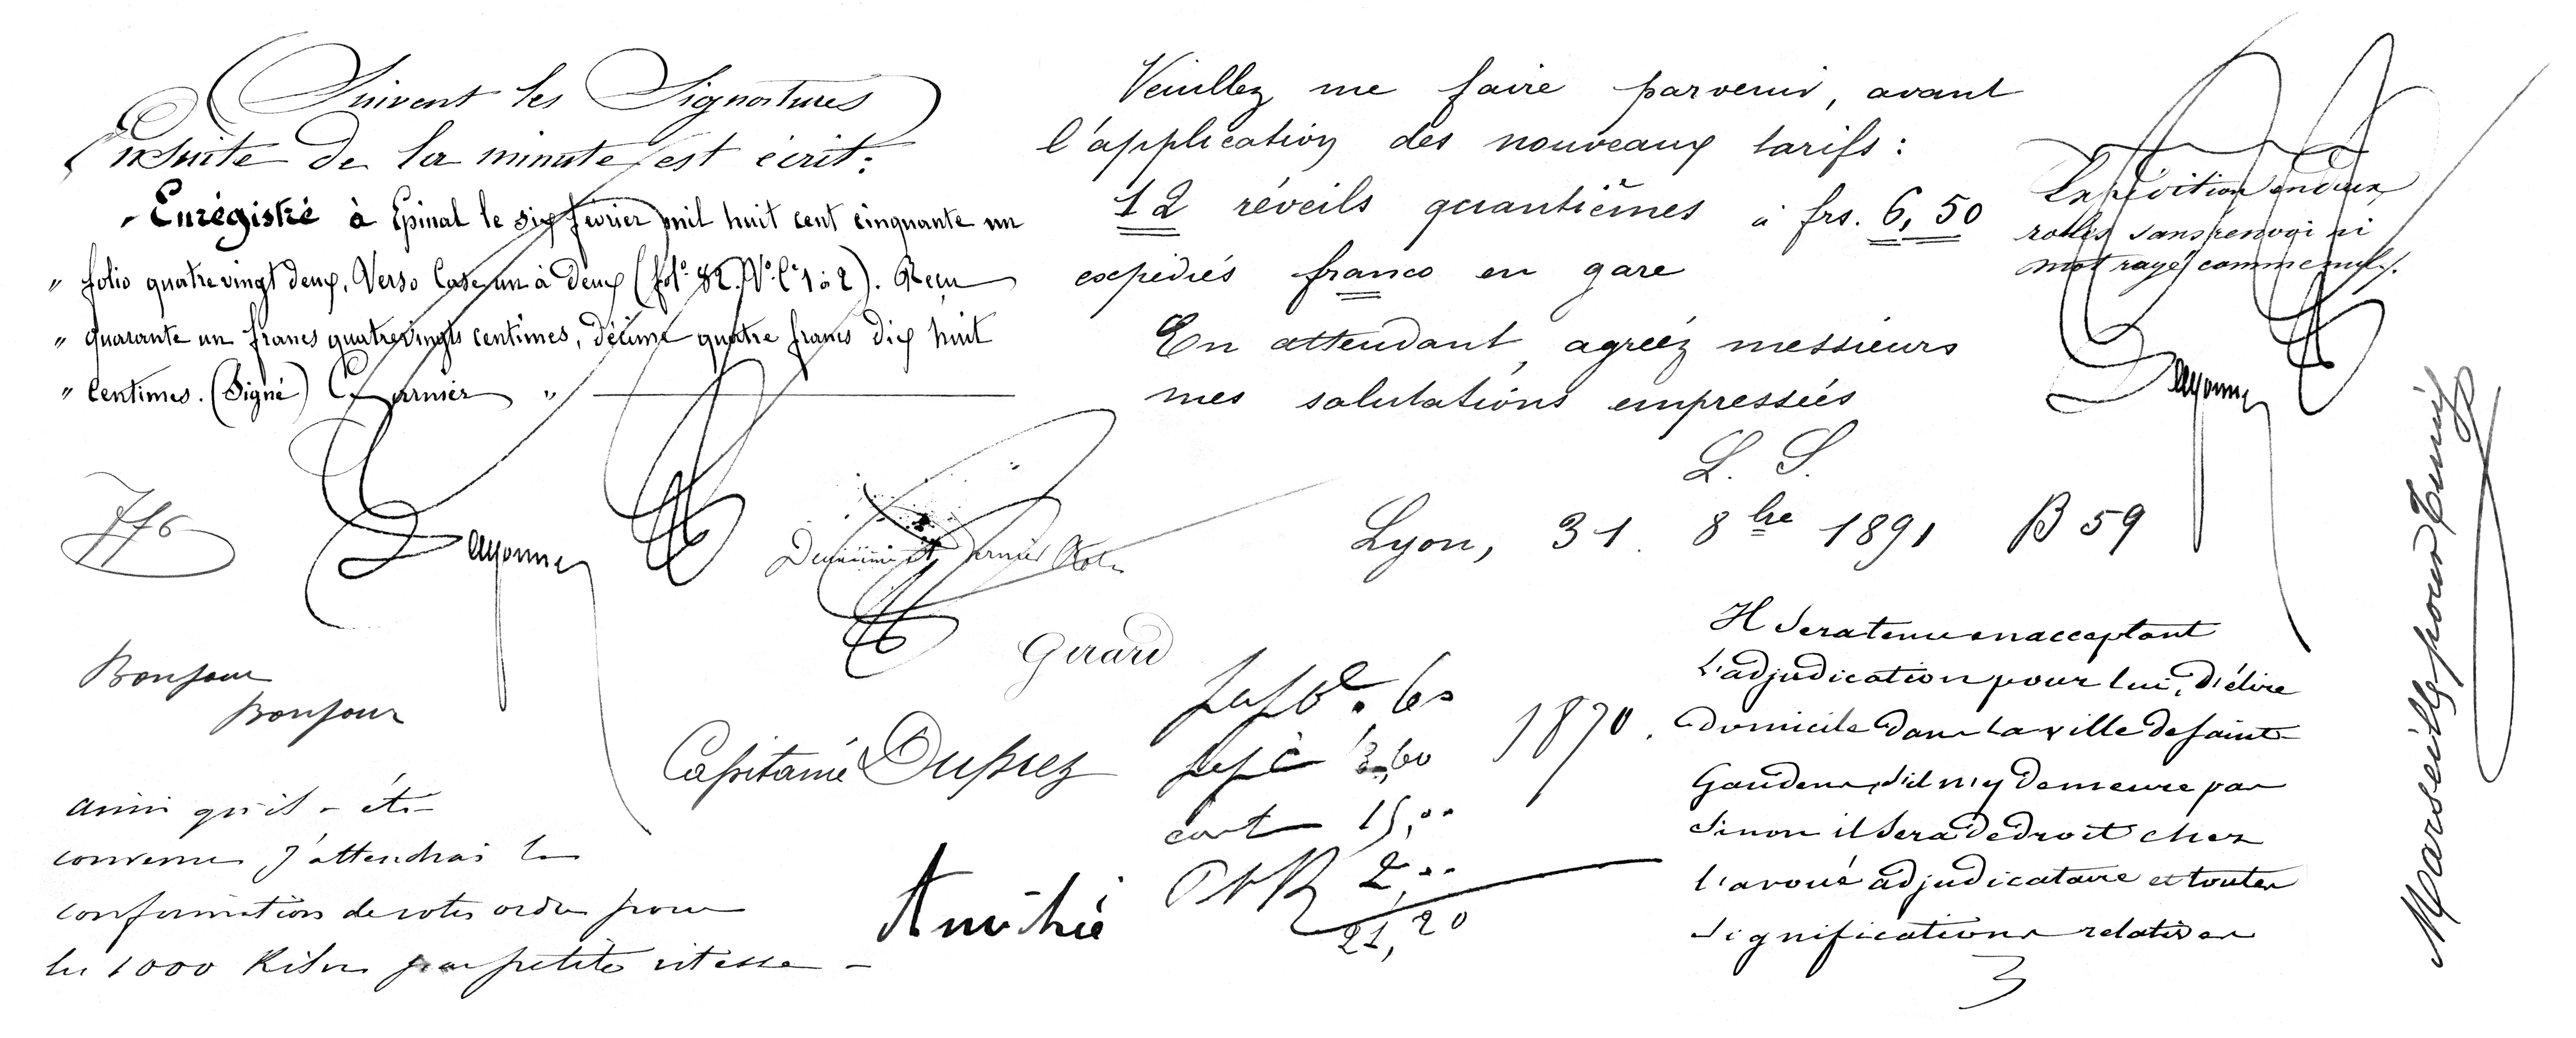 Suivent les Signatures
Ensuite de la minute est écrit:
Enrégistré à Epinal le six février mil huit cent cinquante un
" folio quatre vingt deux, Verso Case un à deux (fol° 82. V° C° 1 à 2). Reçu
" quarante un francs quatre vingts centimes, décime quatre francs dix huit
" Centimes. (Signé) "
776
Girard
Bonjour
Bonjour
Capitaine Duprez
ainsi qu'il a été
convenu j'attendrai la
confirmation de votre ordre pour
les 1000 Kilos par petite vitesse -
Amitié
Veuillez me faire parvenir, avant
l'application des nouveaux tarifs:
12 réveils quantièmes à frs. 6,50
expédiés franco en gare
En attendant, agréez messieurs
mes salutations empressées
L. S.
Lyon, 31. 8bre 1891 B 59
60
3,60
15,00
2,00
21,20
1870.
Expédition en deux
rolles sans renvoi ni
mot rayé comme nul.
Il sera tenu en acceptant
l'adjudication pour lui, d'élire
domicile dans la ville de Saint
Gaudens, s'il n'y demeure pas
Sinon il sera de droit chez
l'avoué adjudicataire et toutes
significations relatives
3
Marseille pour Tunis